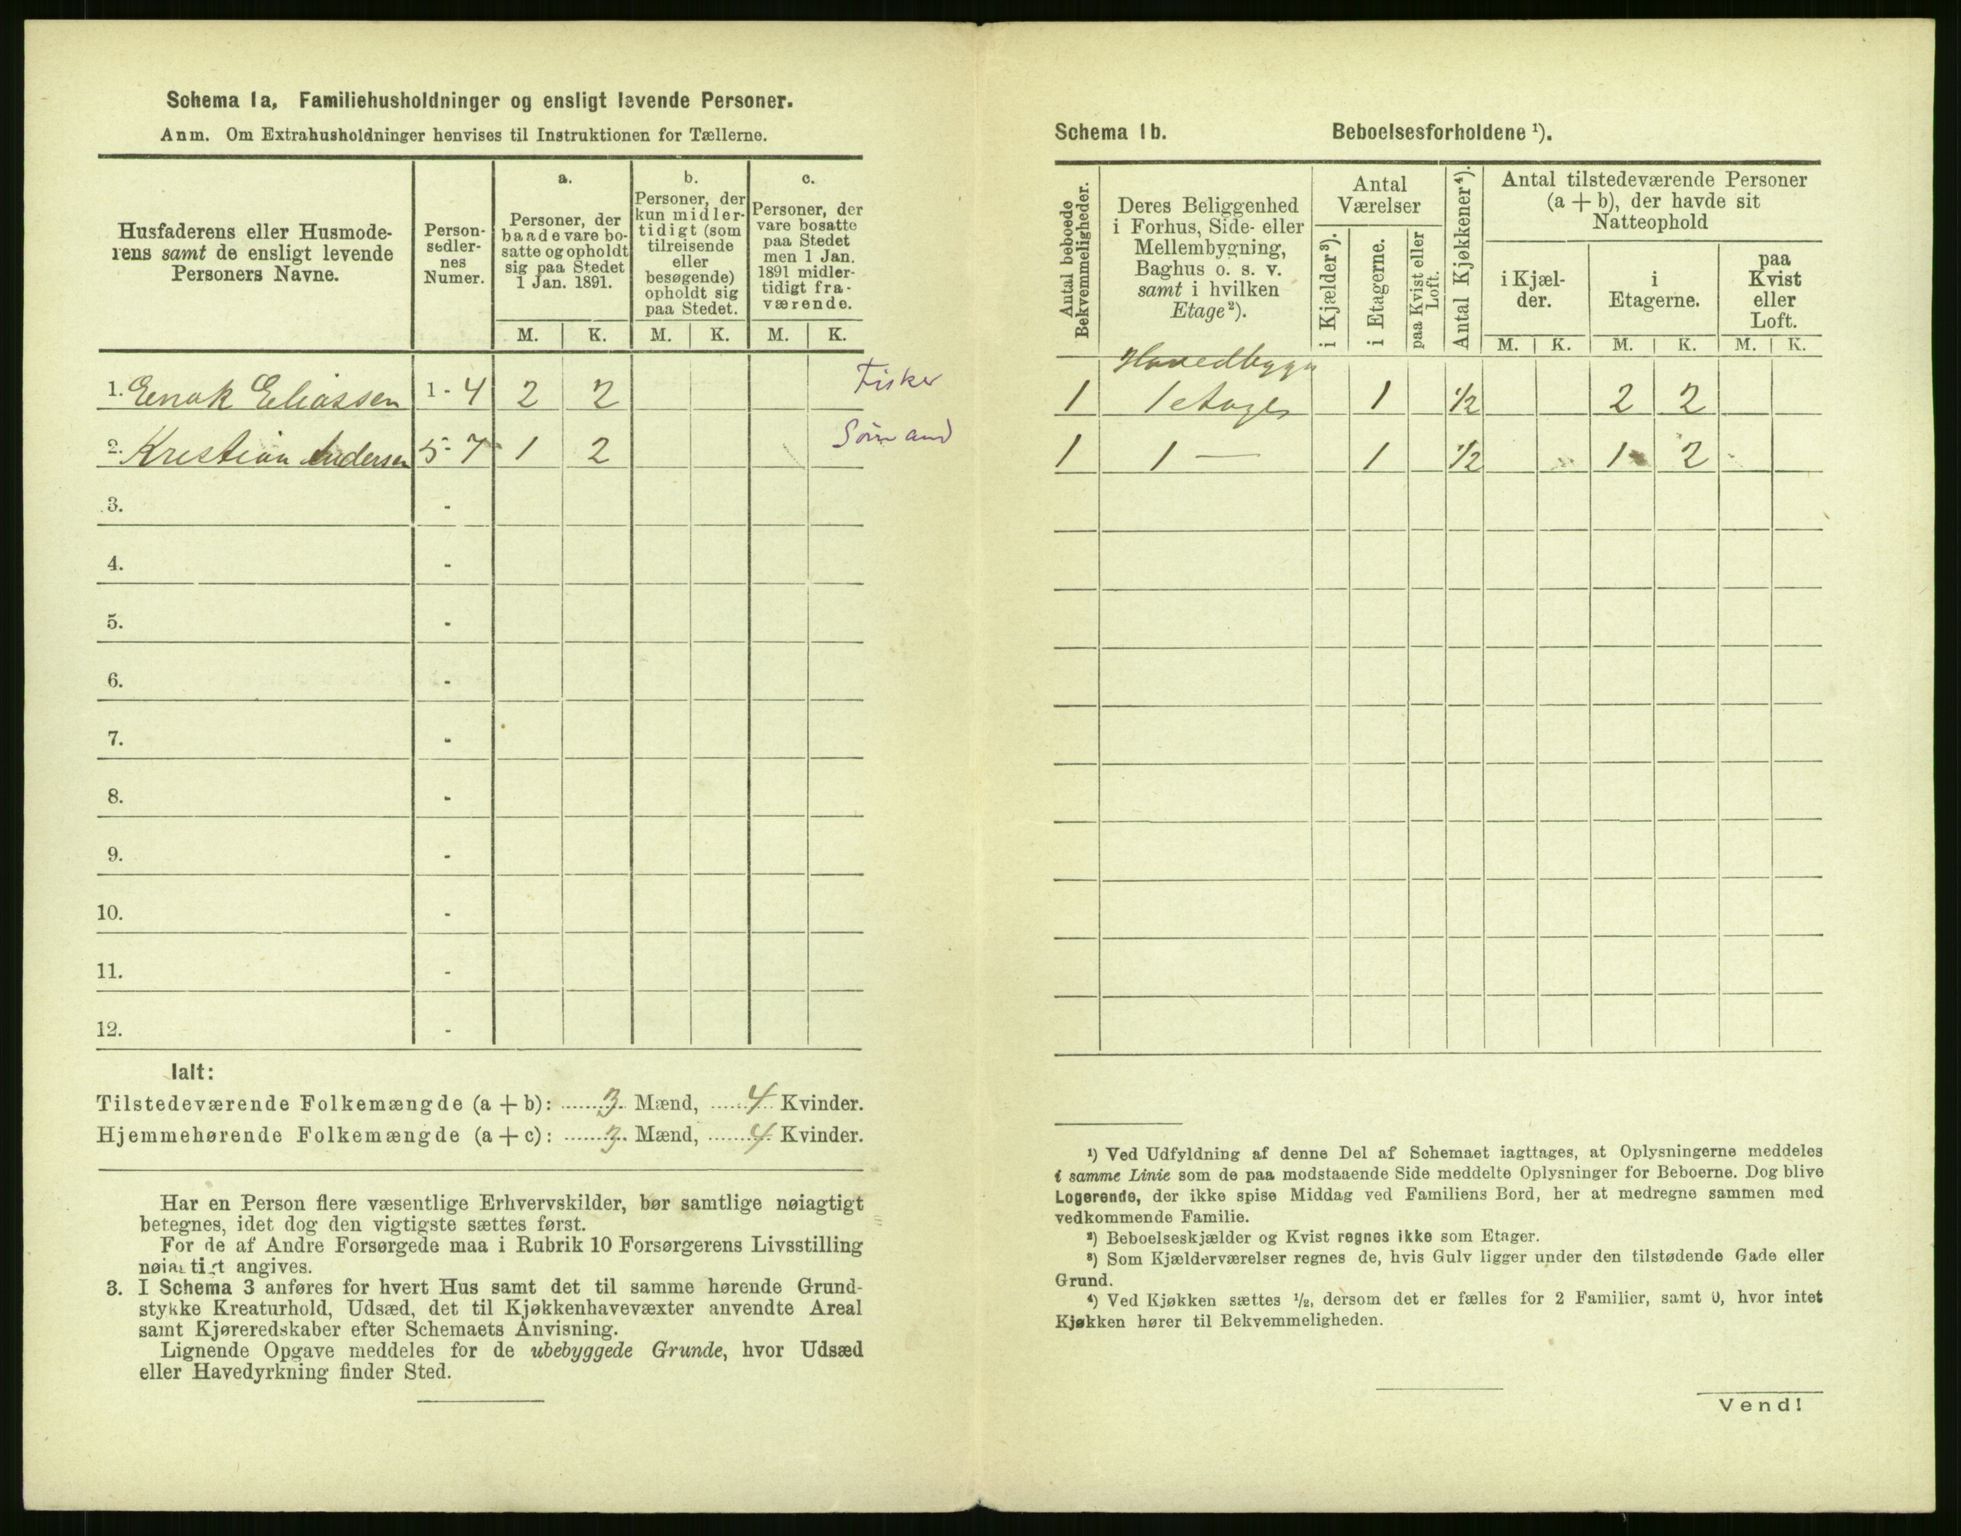 Schema 1a. Familiehusholdninger og ensligt levende Personer.
Anm. Om Extrahusholdninger henvises til Instruktionen for Tællerne.
Husfaderens eller Husmode-
rens samt de ensligt levende
Personers Navne.
Person-
sedler-
nes
Numer.
a.
Personer, der
baade vare bo-
satte og opholdt
sig paa Stedet
1 Jan. 1891.
b.
Personer, der
kun midler-
tidigt (som
tilreisende
eller
besøgende)
opholdt sig
paa Stedet.
c.
Personer, der
vare bosatte
paa Stedet
men 1 Jan.
1891 midler-
tidigt fra-
værende.
M. K. M. K. M. K.
1. Enok Eliassen 1 - 4 2 2 Fisker
2. Kristian Andersen 5 - 7 1 2 Sømand
3. -
4. -
5. -
6. -
7. -
8. -
9. -
10. -
11. -
12. -
Ialt:
Tilstedeværende Folkemængde (a + b): 3 Mænd, 4 Kvinder.
Hjemmehørende Folkemængde (a + c): 3 Mænd, 4 Kvinder.
Har en Person flere væsentlige Erhvervskilder, bør samtlige nøiagtigt
betegnes, idet dog den vigtigste sættes først.
For de af Andre Forsørgede maa i Rubrik 10 Forsørgerens Livsstilling
nøiagtigt angives.
3. I Schema 3 anføres for hvert Hus samt det til samme hørende Grund-
stykke Kreaturhold, Udsæd, det til Kjøkkenhavevæxter anvendte Areal
samt Kjøreredskaber efter Schemaets Anvisning.
Lignende Opgave meddeles for de ubebyggede Grunde, hvor Udsæd
eller Havedyrkning finder Sted.
Schema 1b. Beboelsesforholdene ¹).
Antal beboede
Bekvemmeligheder.
Deres Beliggenhed
i Forhus, Side- eller
Mellembygning,
Baghus o. s. v.
samt i hvilken
Etage²).
Antal
Værelser
i Kjælder³).
i Etagerne.
paa Kvist eller
Loft.
Antal Kjøkkener⁴).
Antal tilstedeværende Personer
(a + b), der havde sit
Natteophold
i Kjæl-
der.
i
Etagerne.
paa
Kvist
eller
Loft.
M. K. M. K. M. K.
Hovedbygn
1 1 etage 1 1/2 2 2
1 1 — 1 1/2 1 2
¹) Ved Udfyldning af denne Del af Schemaet iagttages, at Oplysningerne meddeles
i samme Linie som de paa modstaaende Side meddelte Oplysninger for Beboerne. Dog blive
Logerende, der ikke spise Middag ved Familiens Bord, her at medregne sammen med
vedkommende Familie.
²) Beboelseskjælder og Kvist regnes ikke som Etager.
³) Som Kjælderværelser regnes de, hvis Gulv ligger under den tilstødende Gade eller
Grund.
⁴) Ved Kjøkken sættes ½, dersom det er fælles for 2 Familier, samt 0, hvor intet
Kjøkken hører til Bekvemmeligheden.
Vend!